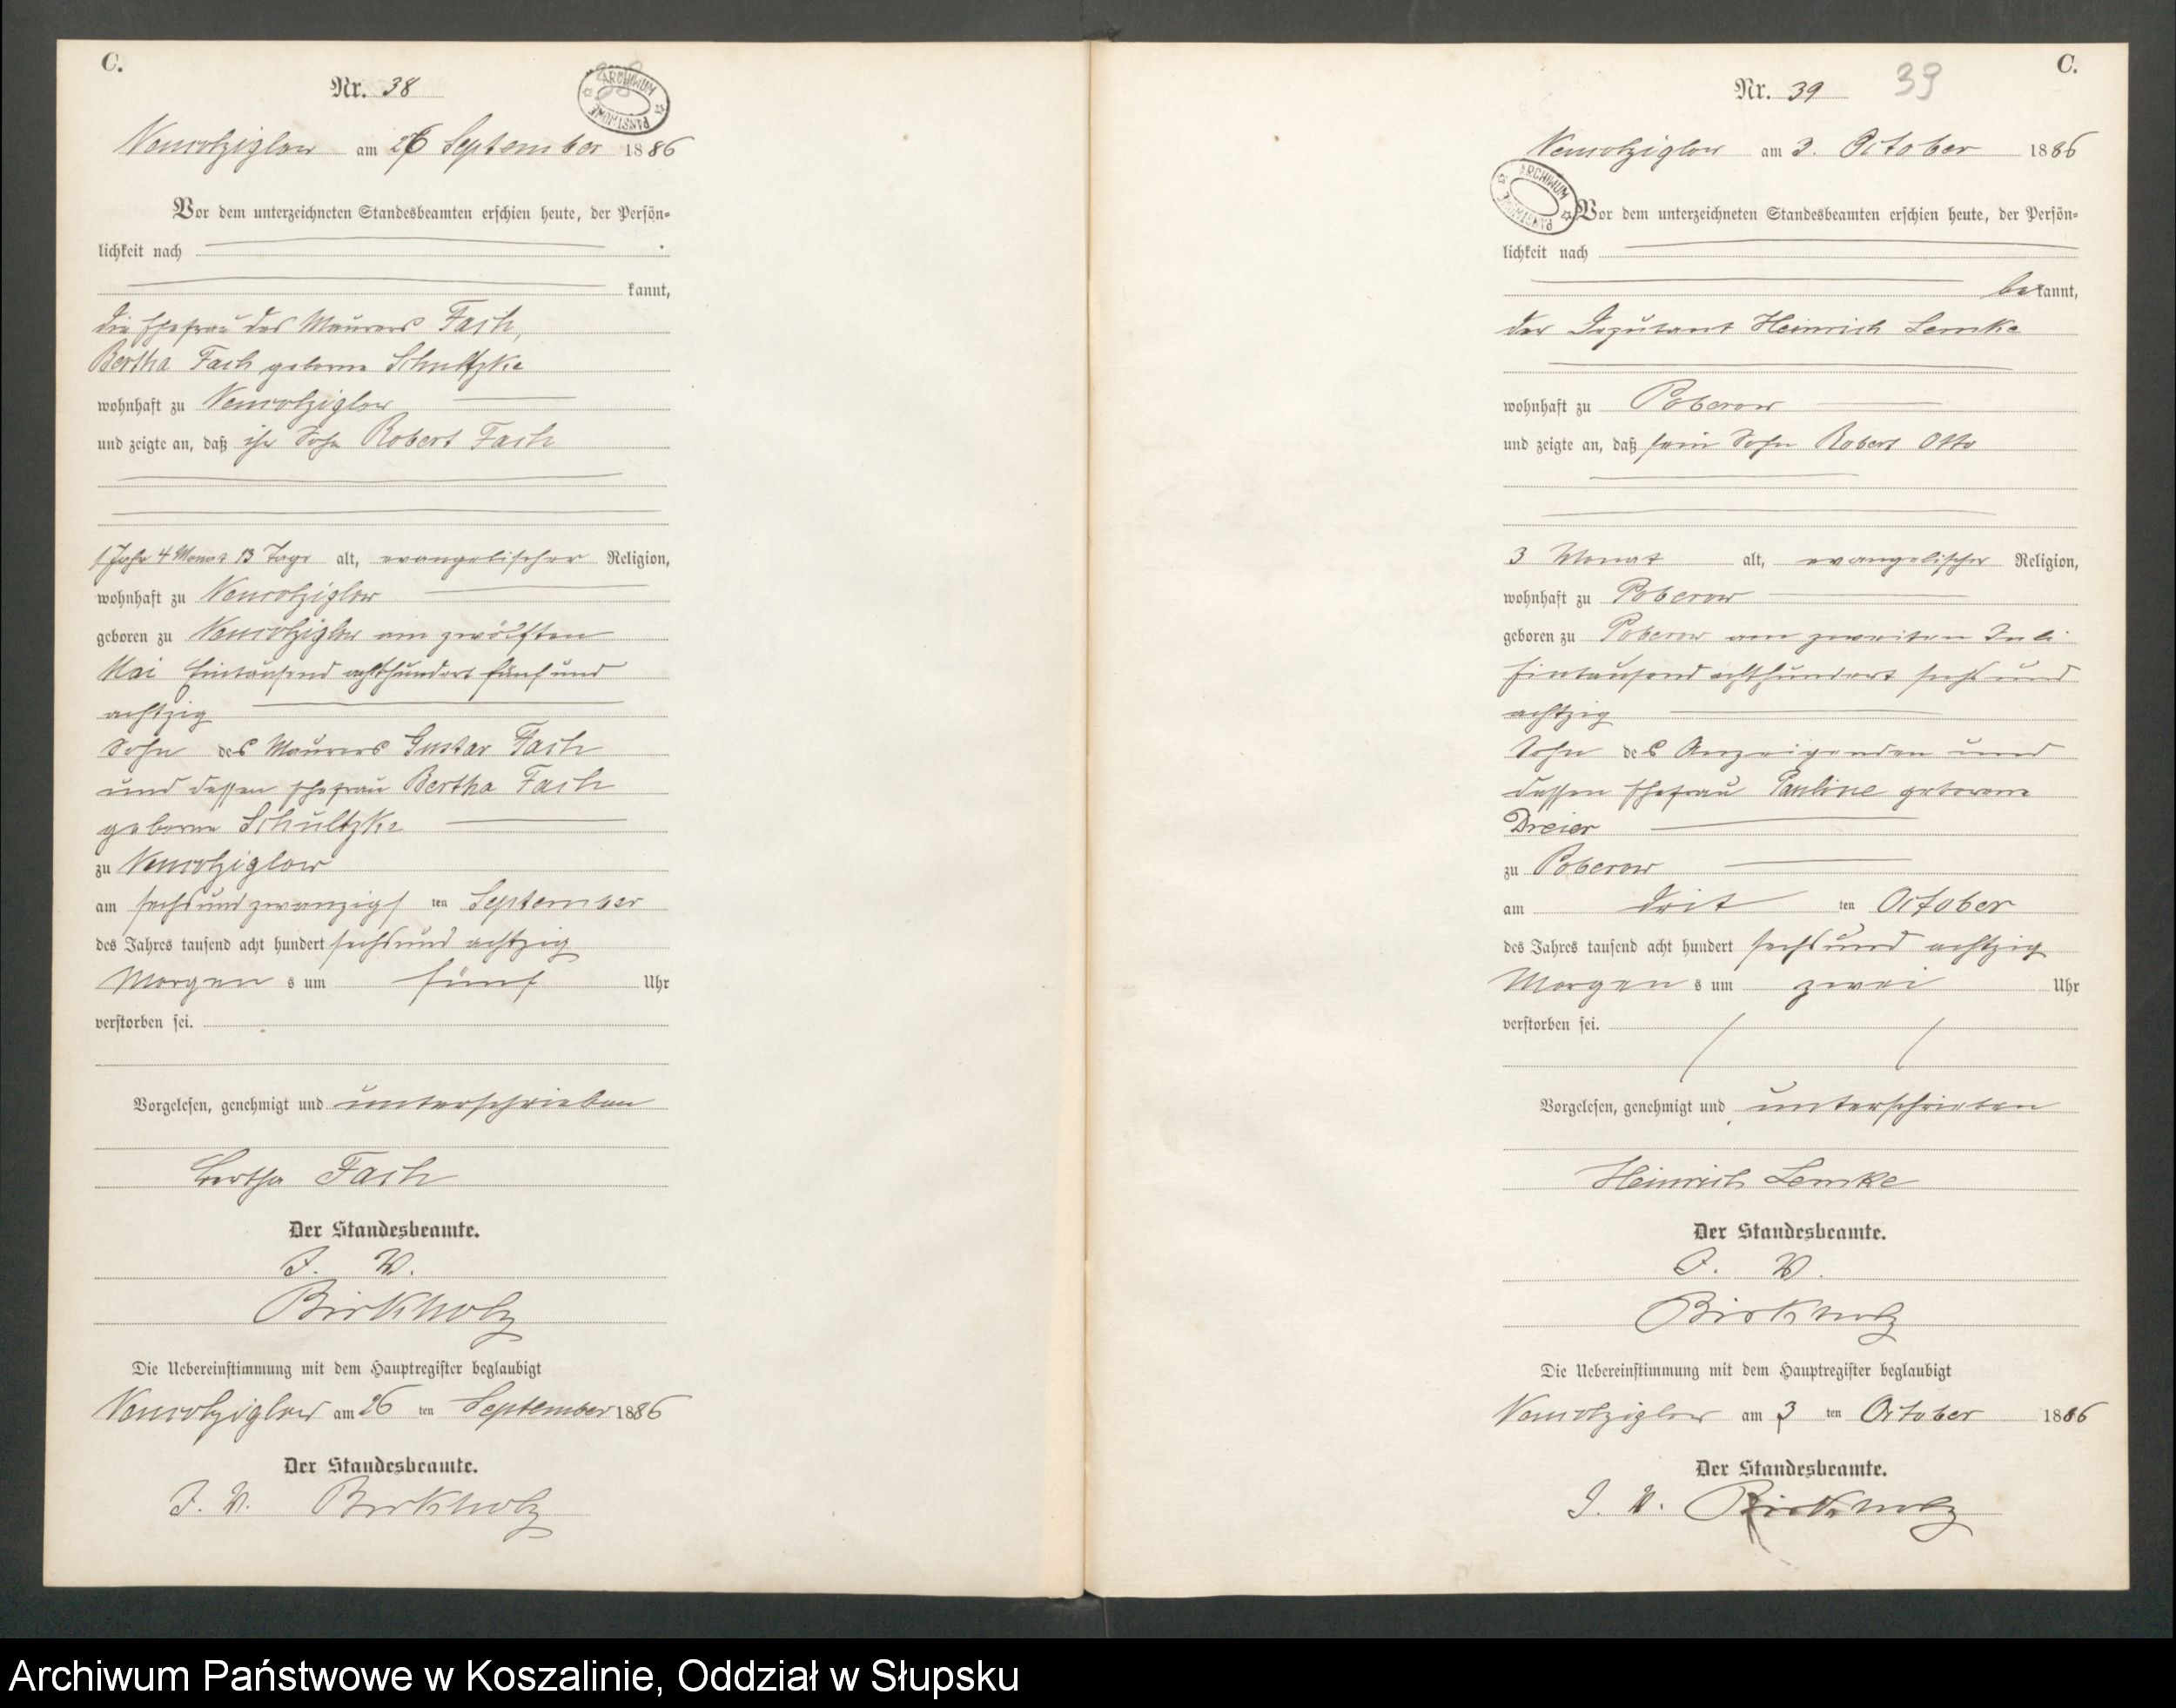 C.
Nr. 38
ARCHIWUM PAŃSTWOWE
Neurotziglow am 26 September 1886
Vor dem unterzeichneten Standesbeamten erschien heute, der Persön=
lichkeit nach
kannt,
die Ehefrau des Maurers Fach,
Bertha Fach geborne Schultzke
wohnhaft zu
und zeigte an, daß ihr Sohn Robert Fach
1 Jahr 4 Monat 13 Tage alt, evangelischer Religion,
wohnhaft zu
geboren zu am zwölften
Mai Eintausend achthundert fünf und
achtzig
Sohn des Maurers Gustav Fach
und dessen Ehefrau Bertha Fach
geborne Schultzke
zu
am sechs und zwanzigsten September
des Jahres tausend acht hundert sechs und achtzig
Morgens um fünf Uhr
verstorben sei.
Vorgelesen, genehmigt und unterschrieben
Bertha Fach
Der Standesbeamte.
J. V.
Birkholz
Die Uebereinstimmung mit dem Hauptregister beglaubigt
am 26 ten September 1886
Der Standesbeamte.
J. V. Birkholz
C.
Nr. 39
39
am 3. October 1886
ARCHIWUM PAŃSTWOWE
Vor dem unterzeichneten Standesbeamten erschien heute, der Persön=
lichkeit nach
bekannt,
der Deputant Heinrich Lemke
wohnhaft zu Poberow
und zeigte an, daß sein Sohn Robert Otto
3 Monat alt, evangelischer Religion,
wohnhaft zu Poberow
geboren zu Poberow am zweiten Juli
Eintausend achthundert sechs und
achtzig
Sohn des Anzeigenden und
dessen Ehefrau Pauline geborene
Dreier
zu Poberow
am dritten October
des Jahres tausend acht hundert sechs und achtzig
Morgens um zwei Uhr
verstorben sei.
Vorgelesen, genehmigt und unterschrieben
Heinrich Lemke
Der Standesbeamte.
J. V.
Birkholz
Die Uebereinstimmung mit dem Hauptregister beglaubigt
am 3 ten October 1886
Der Standesbeamte.
J. V. Birkholz
Archiwum Państwowe w Koszalinie, Oddział w Słupsku